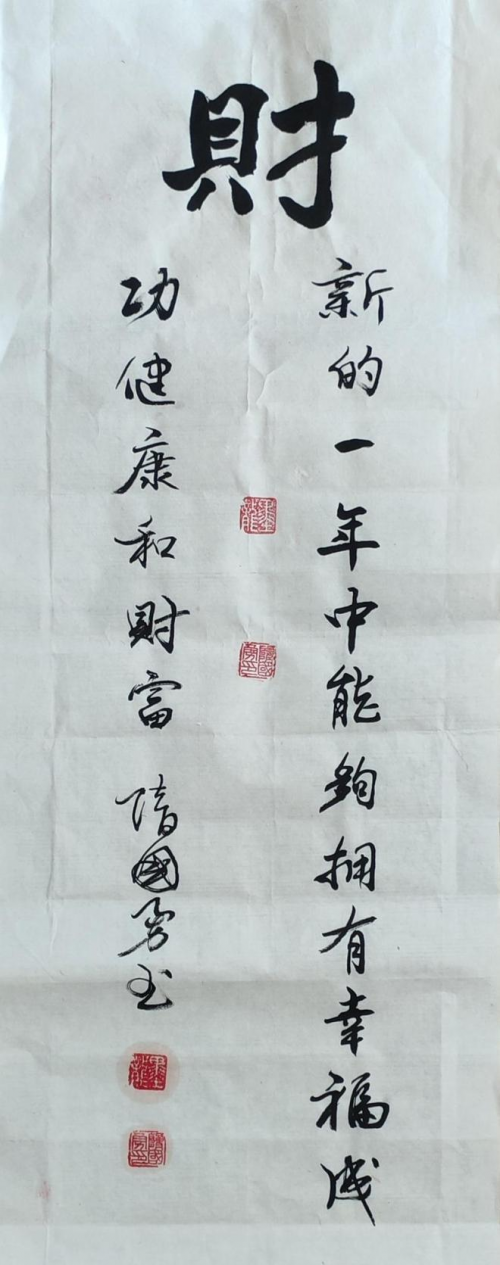 財
新的一年中能夠拥有幸福成
功健康和財富 隋國勇书